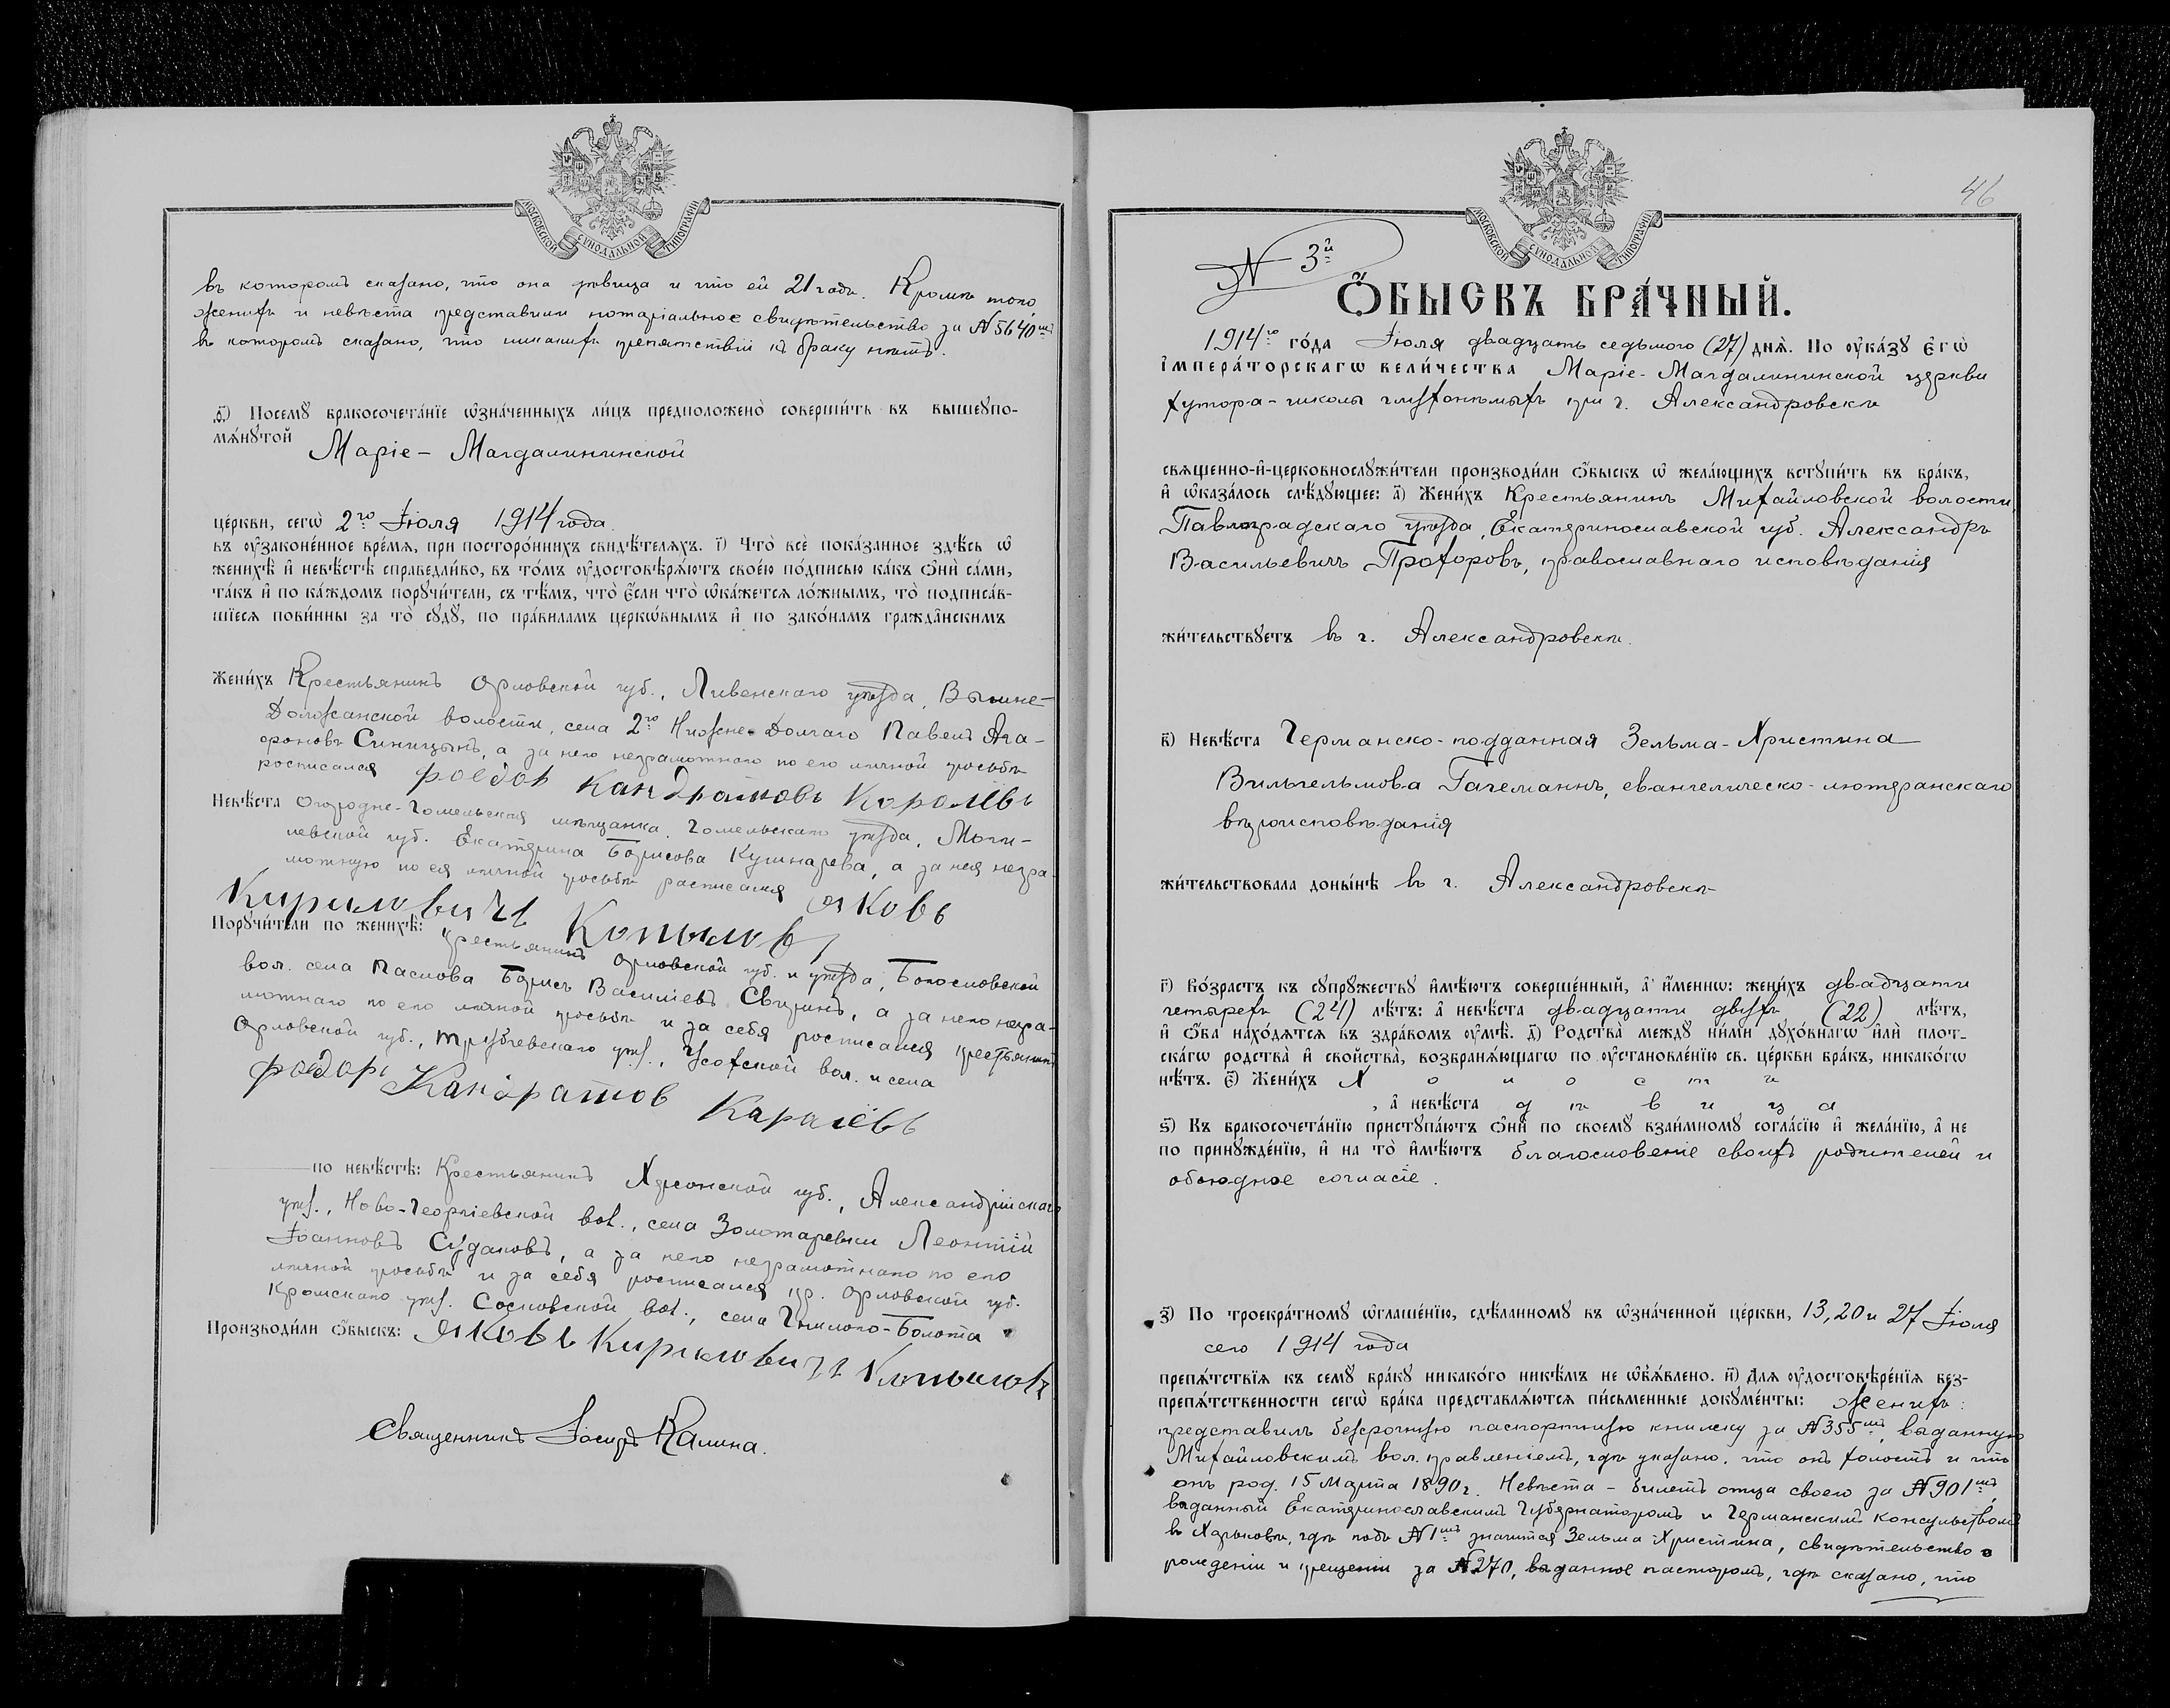 МОСКОВСКОЙ СѴНОДАЛЬНОЙ ТИПОГРАФІИ
въ которомъ сказано, что она дѣвица и что ей 21 годъ. Кромѣ того
женихъ и невѣста представили нотаріальное свидѣтельство за № 5640мъ
въ которомъ сказано, что никакихъ препятствій къ браку нѣтъ.
д҃) Посемꙋ бракосочета́нїе ѡзна́ченныхъ ли́цъ предположено̀ соверши́ть въ вышеꙋпо-
мѧ́нꙋтой
Маріе - Магдалининской
це́ркви, сегѡ̀ 2го Іюля 1914 года
въ ᲂу҆законе́нное вре́мѧ, при посторо́ннихъ свидѣ́телѧхъ. і҃) Что̀ всѐ пока́занное здѣ́сь ѡ҆
женихѣ̀ и҆ невѣ́стѣ справедли́во, въ то́мъ ᲂу҆достовѣрѧ́ютъ свое́ю по́дписью ка́къ ѻ҆нѝ са́ми,
та́къ и҆ по ка́ждомъ порꙋчи́тели, съ тѣ́мъ, что̀ є҆́сли что̀ ѡ҆ка́жетсѧ ло́жнымъ, то̀ подписа́в-
шїесѧ пови́нны за то̀ сꙋдꙋ̀, по пра́виламъ церко́внымъ и҆ по зако́намъ гражда́нскимъ
Жени́хъ Крестьянинъ Орловской губ., Ливенскаго уѣзда, Вышне-
Должанской волости, села 2го Нижне-Долгаго Павелъ Ага-
фоновъ Синицынъ, а за него неграмотнаго по его личной просьбѣ
росписался Фоедор Кандратовь Королёвь
Невѣ́ста Огородне-Гомельская мѣщанка, Гомельскаго уѣзда, Моги-
левской губ. Екатерина Борисова Кушнарева, а за нея негра-
мотную по ея личной просьбѣ расписался Яковь
Кириловичь Копылов
Порꙋчи́тели по женихѣ̀: крестьянинъ Орловской губ. и уѣзда, Богословской
вол. села Паслова Борисъ Василіевъ Свиринъ, а за него негра-
мотнаго по его личной просьбѣ и за себя росписался крестьянинъ
Орловской губ., Трубчевскаго уѣз., Усохской вол. и села
Фоедорь Кандратов Каралёвь
по невѣ́стѣ: Крестьянинъ Херсонской губ., Александрійскаго
уѣз., Ново-Георгіевской вол., села Золотаревки Леонтій
Іоанновъ Судаковъ, а за него неграмотнаго по его
личной просьбѣ и за себя росписался кр. Орловской губ.
Кромскаго уѣз. Сосковской вол., села Гнилого-Болота
Производи́ли ѻ҆бы́скъ: Яковь Кириловичь Копылов
Священникъ Іосифъ Калина.
46
МОСКОВСКОЙ СѴНОДАЛЬНОЙ ТИПОГРАФІИ
№ 3й
Ѻ҆БЫСКЪ БРА́ЧНЫЙ.
1914го го́да Іюля двадцать седьмого (27) днѧ̀. По ᲂу҆ка́зꙋ Є҆гѡ̀
І҆мпера́торскагѡ вели́чества Маріе-Магдалининской церкви
хутора-школы глухонѣмыхъ при г. Александровскѣ
свѧщенно-и҆-церковнослꙋжи́тели производи́ли ѻ҆бы́скъ ѡ҆ жела́ющихъ встꙋпи́ть въ бра́къ,
и҆ ѡ҆каза́лось слѣ́дꙋющее: а҃) Жени́хъ Крестьянинъ Михайловской волости,
Павлоградскаго уѣзда, Екатеринославской губ. Александръ
Васильевичъ Прохоровъ, православнаго исповѣданія
жи́тельствꙋетъ въ г. Александровскѣ.
в҃) Невѣ́ста Германско-подданная Зельма-Христина
Вильгельмова Гагеманнъ, евангелическо-лютеранскаго
вѣроисповѣданія
жи́тельствовала доны́нѣ въ г. Александровскѣ
г҃) Во́зрастъ къ сꙋпрꙋ́жествꙋ и҆мѣ́ютъ соверше́нный, а҆ и҆́менно: жени́хъ двадцати
четырехъ (24) лѣ́тъ: а҆ невѣ́ста двадцати двухъ (22) лѣ́тъ,
и҆ ѻ҆́ба нахо́дѧтсѧ въ здра́вомъ ᲂу҆мѣ̀. д҃) Родства̀ междꙋ ни́ми дꙋхо́внагѡ и҆лѝ плот-
ска́гѡ родства̀ и҆ сво́йства, возбранѧ́ющагѡ по ᲂу҆становле́нїю св. це́ркви бра́къ, никако́гѡ
нѣ́тъ. є҃) Жени́хъ Х о л о с т ъ
, а҆ невѣ́ста д ѣ в и ц а
ѕ҃) Къ бракосочета́нїю пристꙋпа́ютъ ѻ҆нѝ по своемꙋ̀ взаи́мномꙋ согла́сїю и҆ жела́нїю, а҆ не
по принꙋжде́нїю, и҆ на то̀ и҆мѣ́ютъ благословеніе своихъ родителей и
обоюдное согласіе.
з҃) По троекра́тномꙋ ѡ҆глаше́нїю, сдѣ́ланномꙋ въ ѡ҆зна́ченной це́ркви, 13, 20 и 27 Іюля
сего 1914 года
препѧ́тствїѧ къ семꙋ̀ бра́кꙋ никако́го никѣ́мъ не ѡ҆б̾ѧ́влено. и҃) Для ᲂу҆достовѣре́нїѧ без-
препѧ́тственности сегѡ̀ бра́ка представлѧ́ютсѧ пи́сьменные докꙋме́нты: Женихъ:
представилъ безсрочную паспортную книжку за № 355мъ, выданную
Михайловскимъ вол. правленіемъ, гдѣ указано, что онъ холостъ и что
онъ род. 15 Марта 1890 г. Невѣста - билетъ отца своего за № 901мъ,
выданный Екатеринославскимъ Губернаторомъ и Германскимъ Консульствомъ
въ Харьковѣ, гдѣ подъ № 1мъ значится Зельма Христина, свидѣтельство о
рожденіи и крещеніи за № 270, выданное пасторомъ, гдѣ сказано, что